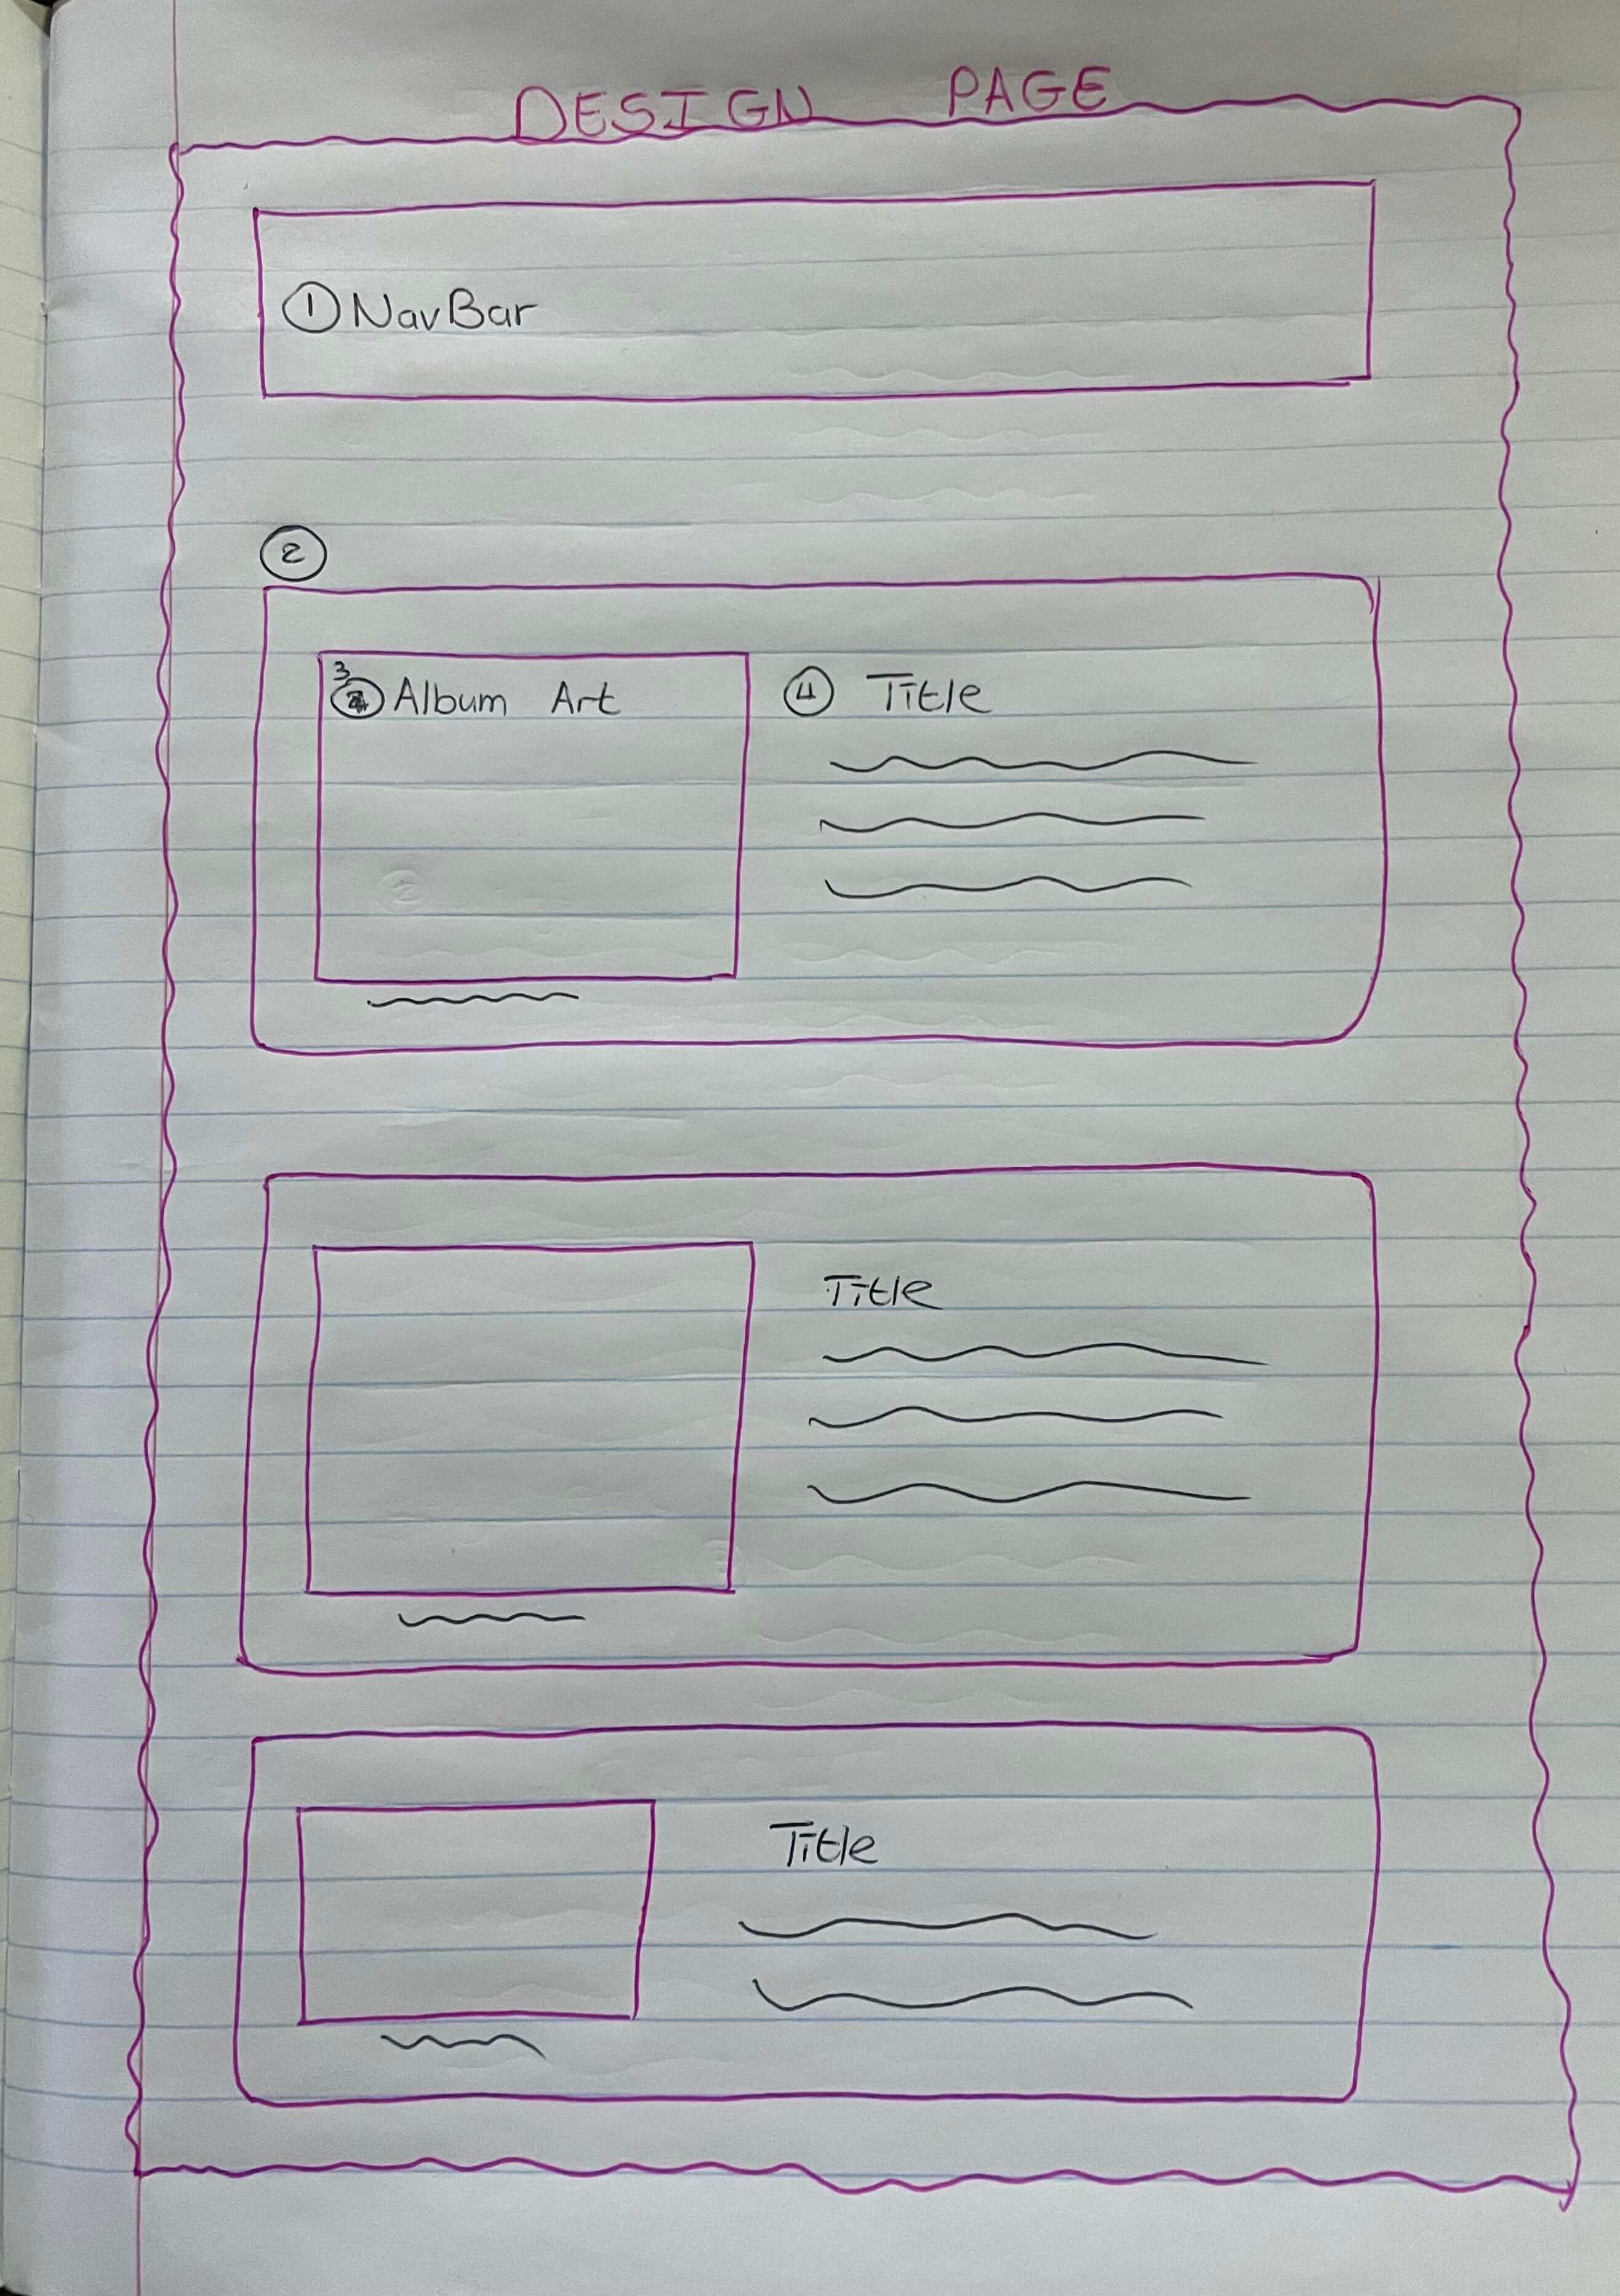 DESIGN PAGE
① NavBar
②
3 Album Art
④ Title
Title
Title